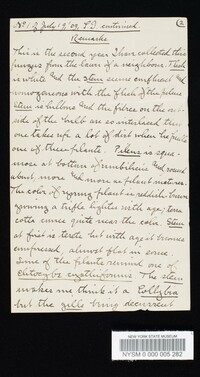 No 1. 2 July 19/09. P.J. continued. (2
Remarks
This is the second year I have collected this
fungus from the lawn of a neighbour. Flesh
is white and the stem seems confluent and
homogeneous with the flesh of the pileus
Stem is bulbous and the fibres on the out-
side of the bulb are so interlaced that
one takes up a lot of dirt when he pulls
one of these plants. Pileus is squa-
mose at bottom of umbilicus and round
about, more and more as plant matures.
The color of young plant is reddish brown
growing a trifle lighter with age; terra
cotta comes quite near the color. Stem
at first is terete but with age it becomes
compressed, almost flat in some.
Some of the plants remind one of
Clitocybe cyathiformis. The stem
makes me think it a Collybia
but the gills being decurrent
NEW YORK STATE MUSEUM
NYSM 0 000 005 282